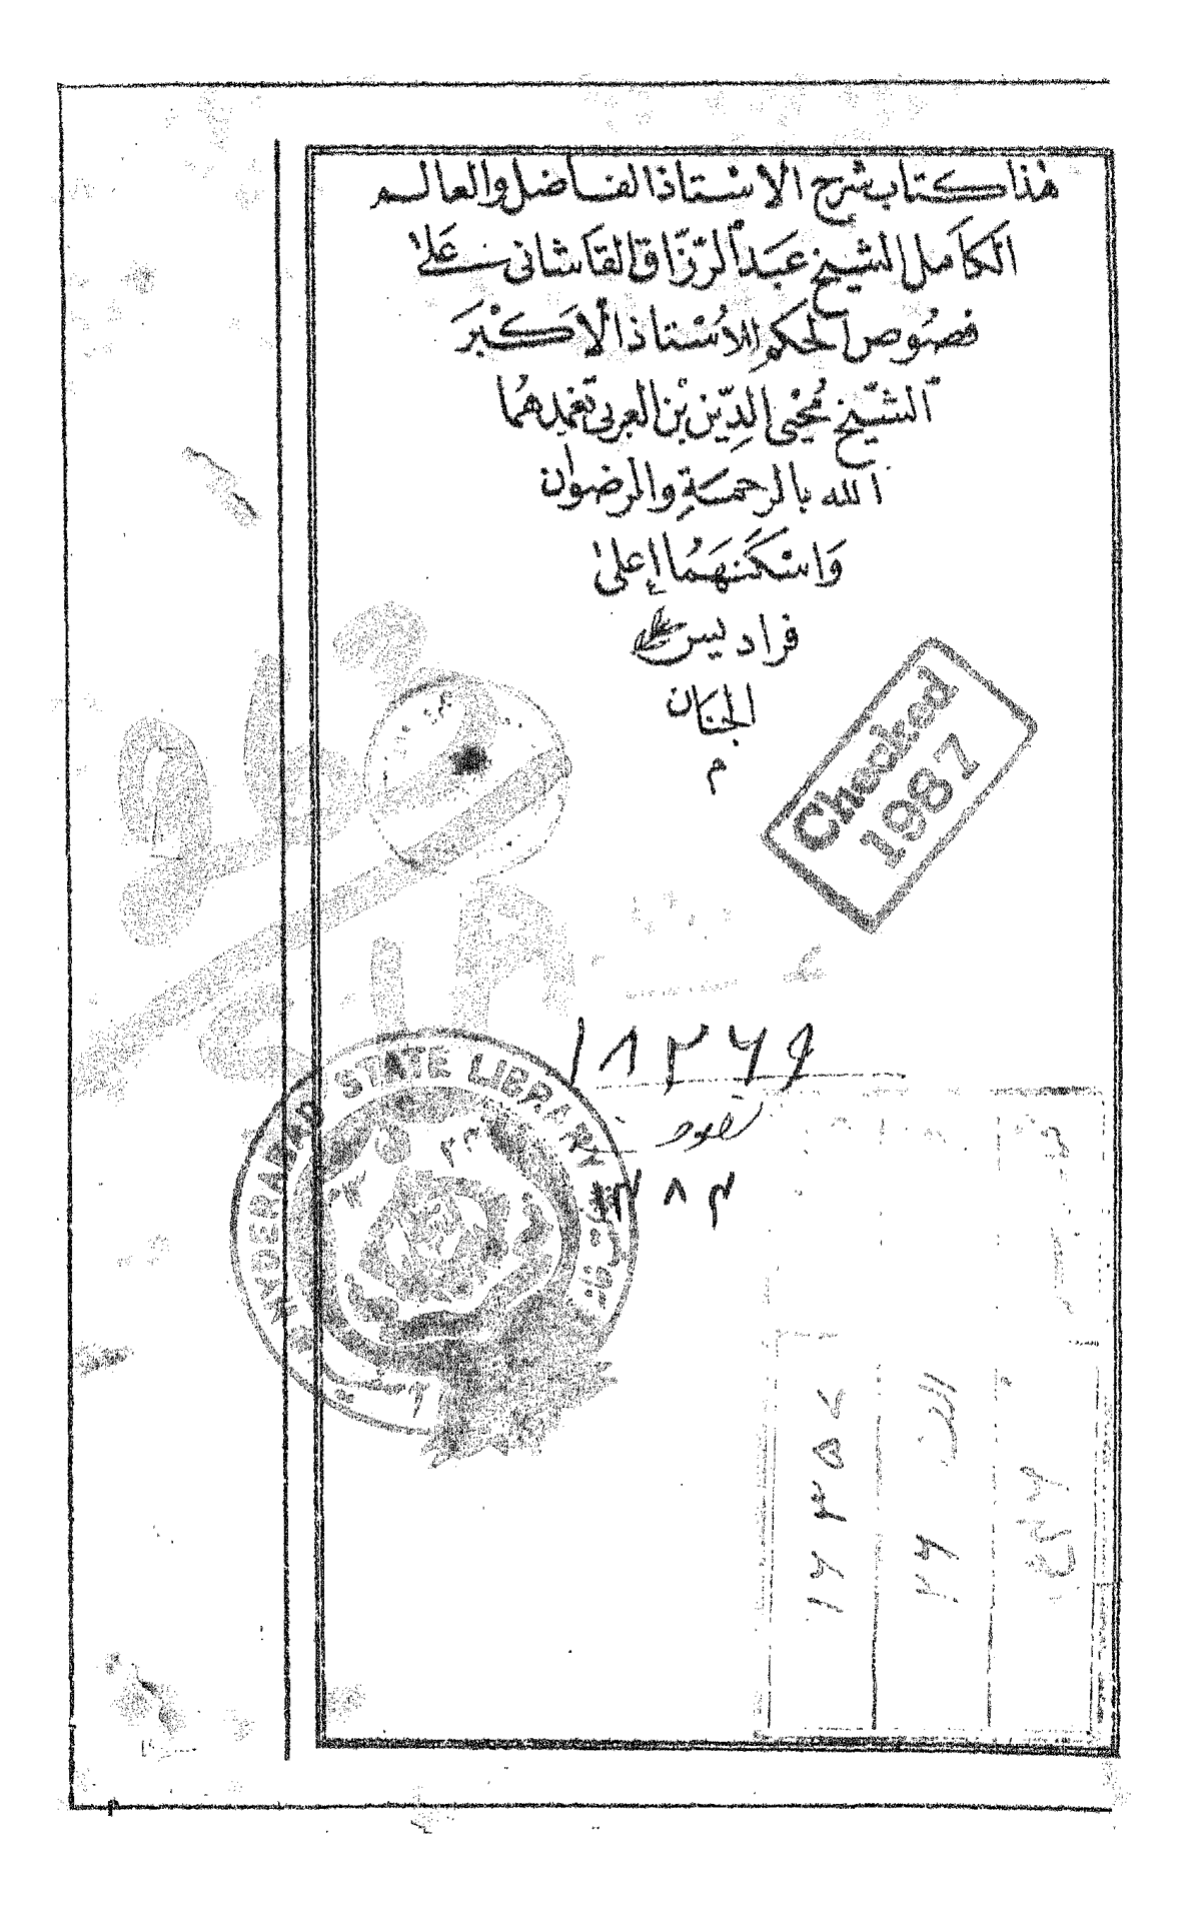 هٰذا كتاب شرح الاستاذ الفاضل والعالم
الكامل الشيخ عبد الرّزّاق القاشانى على
فصُوص الحكم للاُستاذ الاكبر
الشّيخ مُحيى الدِّين بن العربى تغمدهُما
الله بالرحمة والرضوان
وَاسكنهمُا إعلىٰ
فراديس
الجنان
م
Checked
1987
۱۸۲۶۹
تصوف
۳۸۴
HYDERABAD STATE LIBRARY
۱۶۳۵۷
الف
۲۶